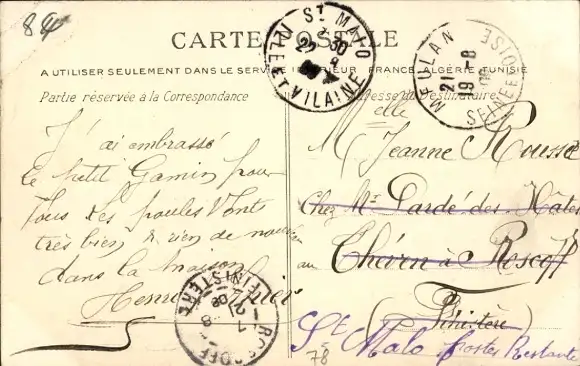 84
CARTE POSTALE
A UTILISER SEULEMENT DANS LE SERVICE INTÉRIEUR FRANCE, ALGÉRIE, TUNISIE
Partie réservée à la Correspondance
Adresse du Destinataire
J'ai embrassé
le petit Gamin pour
tous les poules vont
très bien, & rien de nouveau
dans la maison
Henri
Melle
Jeanne Rousse
Chez Mr Pardé des
au
à Roscoff
(Finistère)
St Malo Postes Restante
78
ST MALO
ILLE-ET-VILAINE
MEULAN
SEINE-ET-OISE
ROSCOFF
FINISTERE